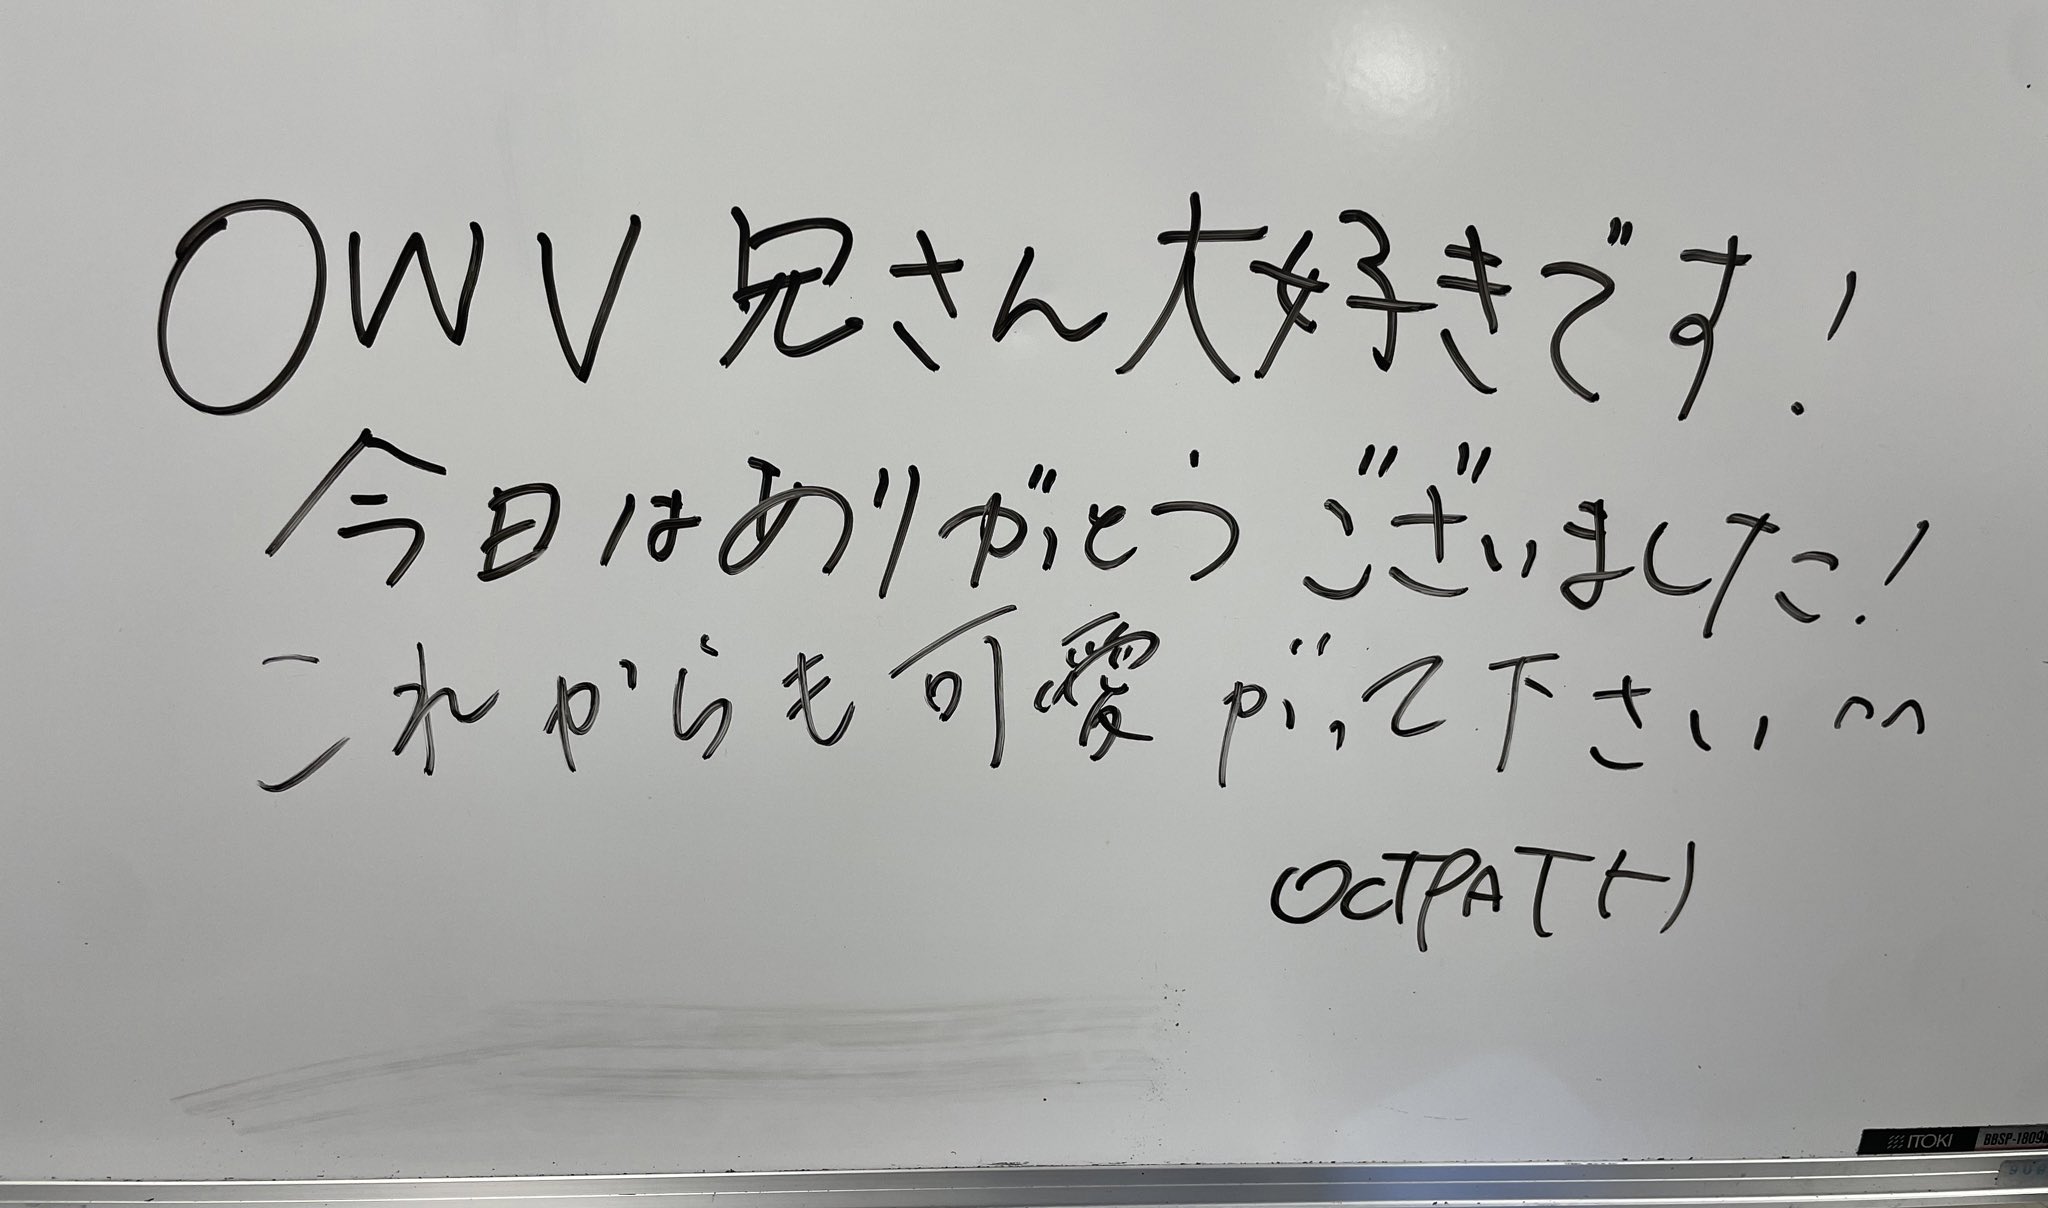 OWV兄さん大好きです!
今日はありがとうございました!
これからも可愛がって下さい^^
OCTPATH
ITOKI
BBSP-1809